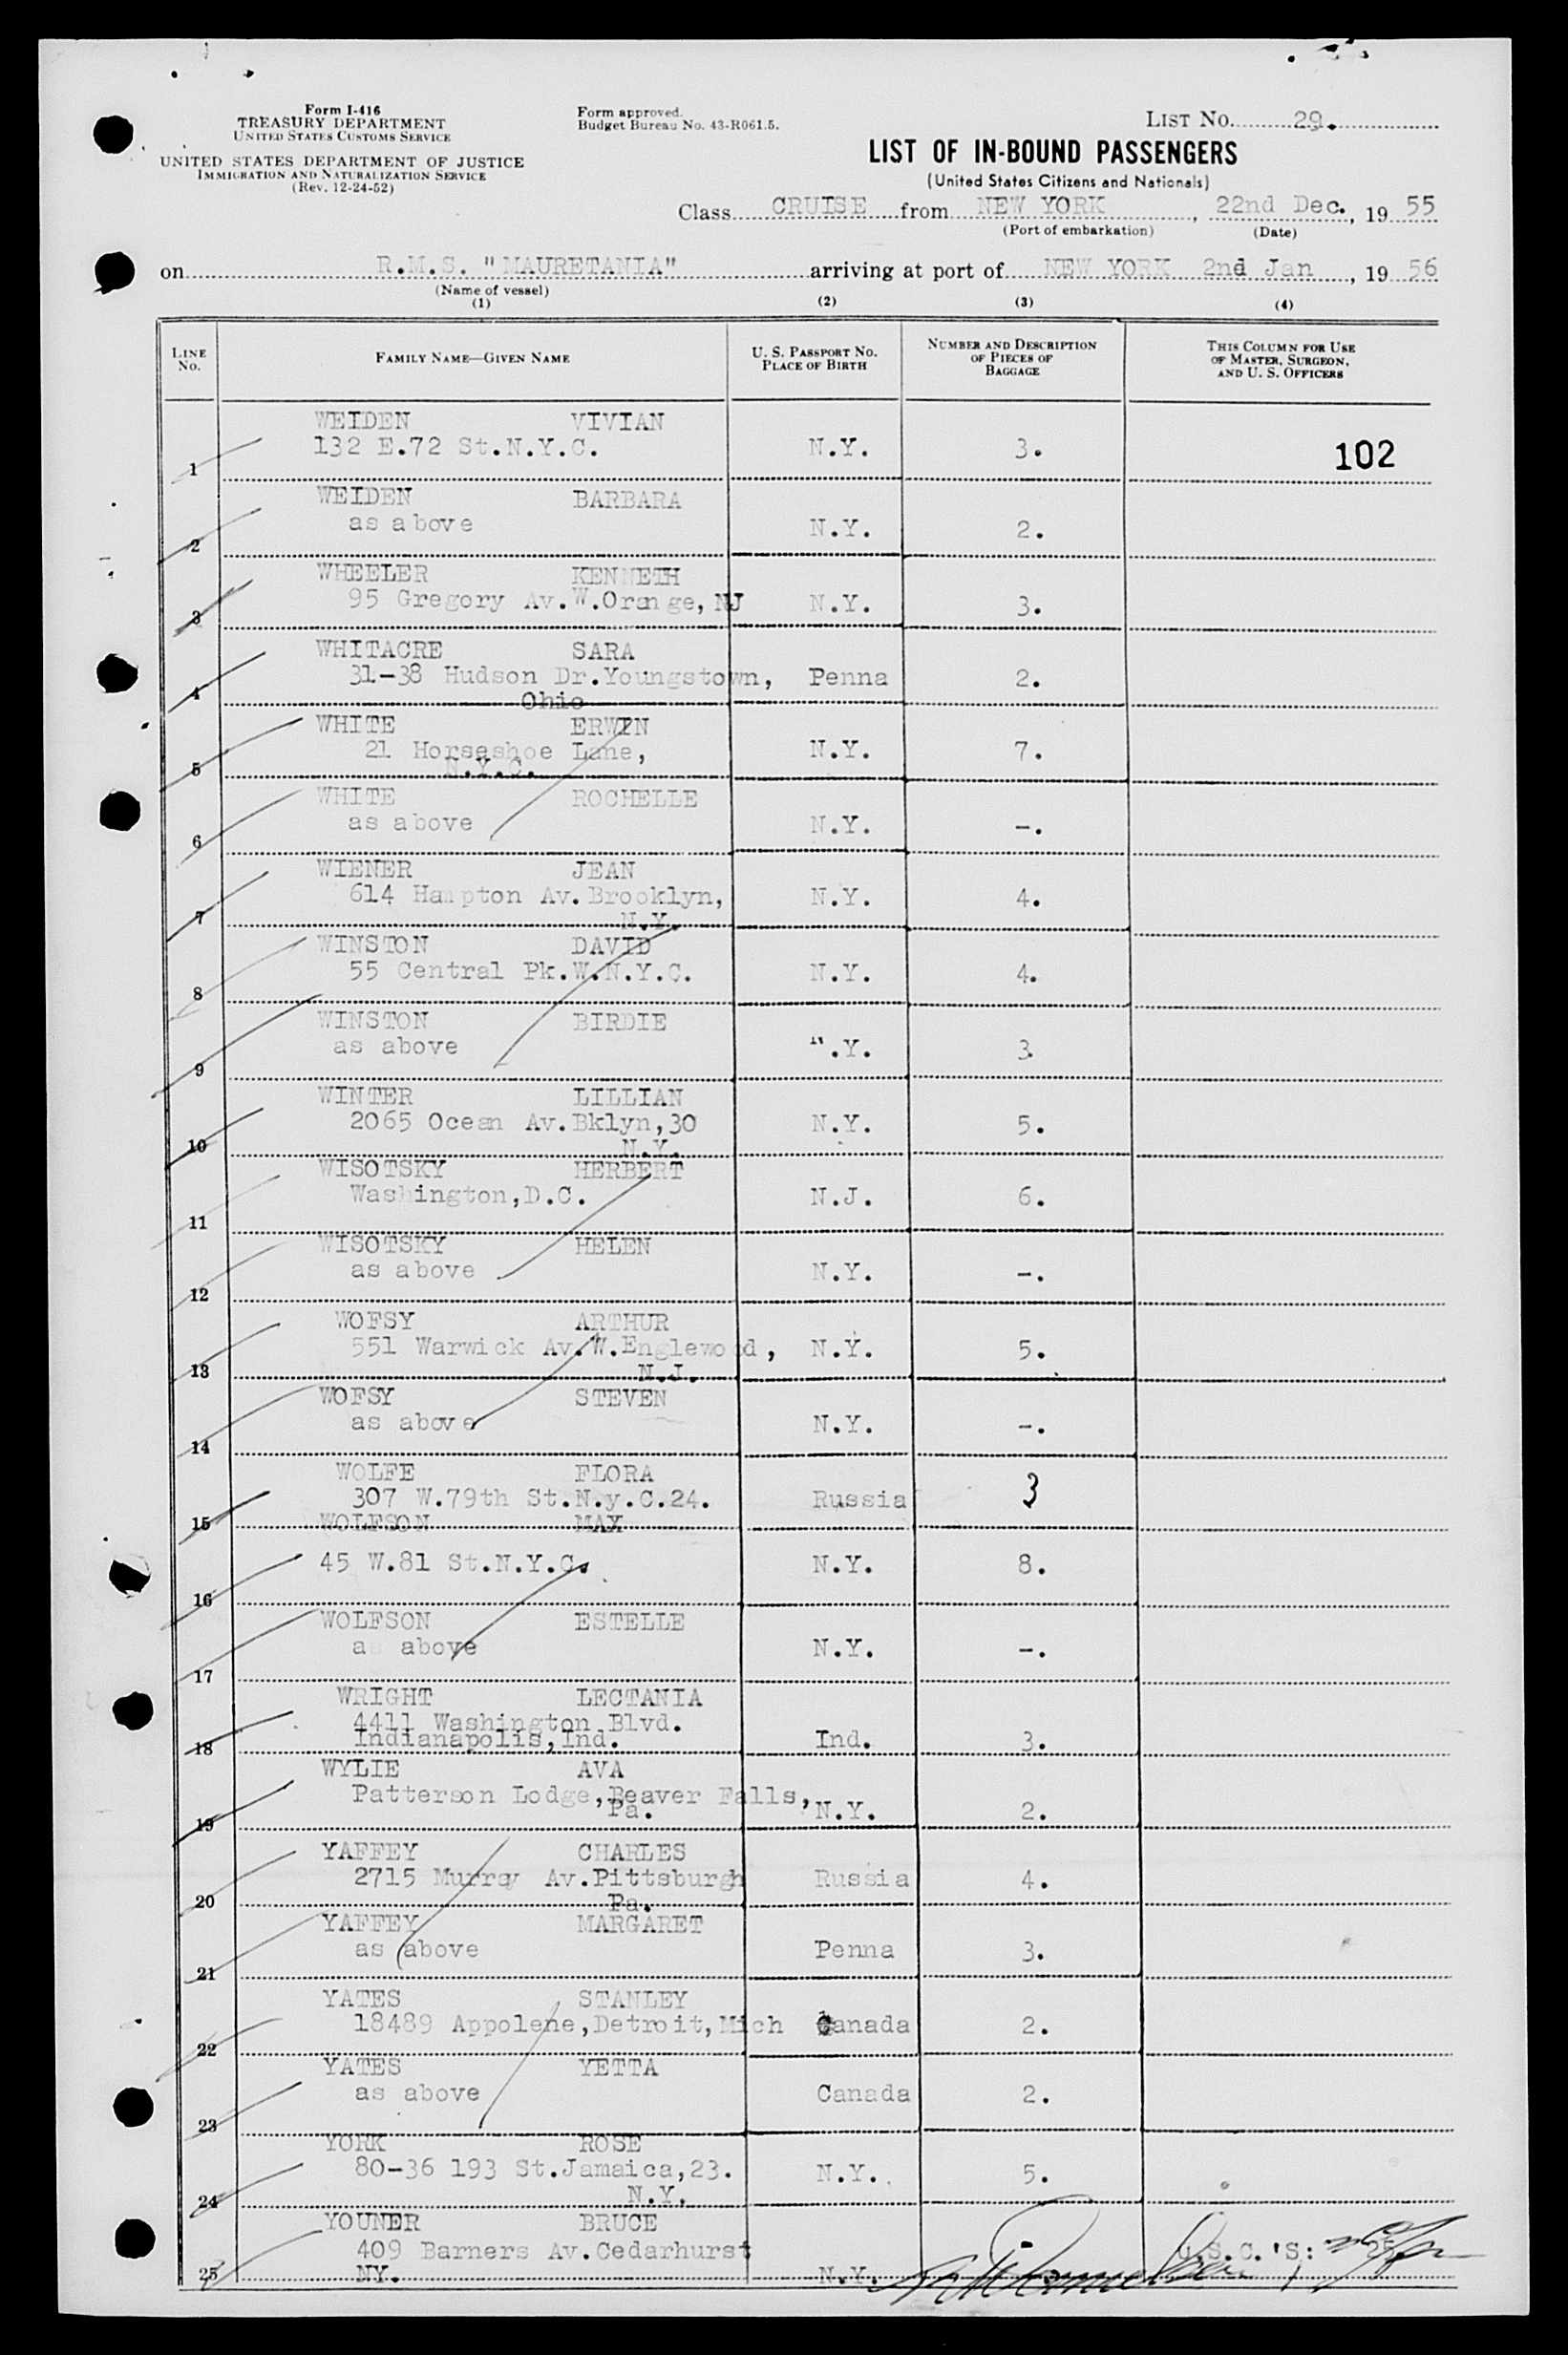 Form I-416
TREASURY DEPARTMENT
UNITED STATES CUSTOMS SERVICE
UNITED STATES DEPARTMENT OF JUSTICE
IMMIGRATION AND NATURALIZATION SERVICE
(Rev. 12-24-52)
Form approved.
Budget Bureau No. 43-R061.5.
LIST NO. 29.
LIST OF IN-BOUND PASSENGERS
(United States Citizens and Nationals)
Class CRUISE from NEW YORK, 22nd Dec., 19 55
(Port of embarkation) (Date)
on R.M.S. "MAURETANIA" arriving at port of NEW YORK 2nd Jan, 19 56
(Name of vessel)
(1) (2) (3) (4)
LINE NO. FAMILY NAME—GIVEN NAME U. S. PASSPORT NO. PLACE OF BIRTH NUMBER AND DESCRIPTION OF PIECES OF BAGGAGE THIS COLUMN FOR USE OF MASTER, SURGEON, AND U. S. OFFICERS
WEIDEN VIVIAN
1 132 E.72 St.N.Y.C. N.Y. 3. 102
WEIDEN BARBARA
2 as above N.Y. 2.
WHEELER KENNETH
3 95 Gregory Av.W.Orange,NJ N.Y. 3.
WHITACRE SARA
4 31-38 Hudson Dr.Youngstown, Penna 2.
Ohio
WHITE ERWIN
5 21 Horseshoe Lane, N.Y. 7.
N.Y.C.
WHITE ROCHELLE
6 as above N.Y. -.
WIENER JEAN
7 614 Hampton Av.Brooklyn, N.Y. 4.
N.Y.
WINSTON DAVID
8 55 Central Pk.W.N.Y.C. N.Y. 4.
WINSTON BIRDIE
9 as above N.Y. 3
WINTER LILLIAN
10 2065 Ocean Av.Bklyn,30 N.Y. 5.
N.Y.
WISOTSKY HERBERT
11 Washington,D.C. N.J. 6.
WISOTSKY HELEN
12 as above N.Y. -.
WOFSY ARTHUR
13 551 Warwick Av.W.Englewood, N.Y. 5.
N.J.
WOFSY STEVEN
14 as above N.Y. -.
WOLFE FLORA
15 307 W.79th St.N.y.C.24. Russia 3
WOLFSON MAX
16 45 W.81 St.N.Y.C. N.Y. 8.
WOLFSON ESTELLE
17 as above N.Y. -.
WRIGHT LECTANIA
4411 Washington Blvd.
18 Indianapolis,Ind. Ind. 3.
WYLIE AVA
19 Patterson Lodge,Beaver Falls, N.Y. 2.
Pa.
YAFFEY CHARLES
20 2715 Murray Av.Pittsburgh Russia 4.
Pa.
YAFFEY MARGARET
21 as above Penna 3.
YATES STANLEY
22 18489 Appolene,Detroit,Mich Canada 2.
YATES YETTA
23 as above Canada 2.
YORK ROSE
24 80-36 193 St.Jamaica,23. N.Y. 5.
N.Y.
YOUNER BRUCE
409 Barners Av.Cedarhurst - U.S.C.'S: 25
25 NY. N.Y.